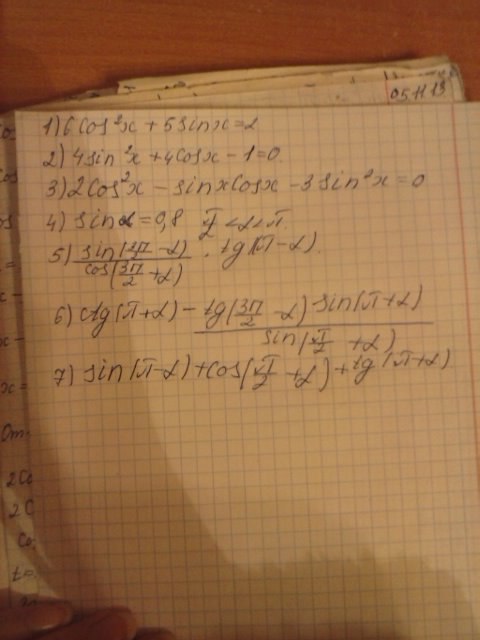 05.11.13
1) 6cos²x + 5sinx = 2
2) 4sin²x + 4cosx - 1 = 0
3) 2cos²x - sinxcosx - 3sin²x = 0
4) sinα = 0,8 π/2 < α < π.
5) sin(2π - α)/cos(3π/2 + α) · tg(π - α).
6) ctg(π + α) - tg(3π/2 - α) sin(π + α)/sin(π/2 + α)
7) sin(π - α) + cos(π/2 + α) + tg(π + α)